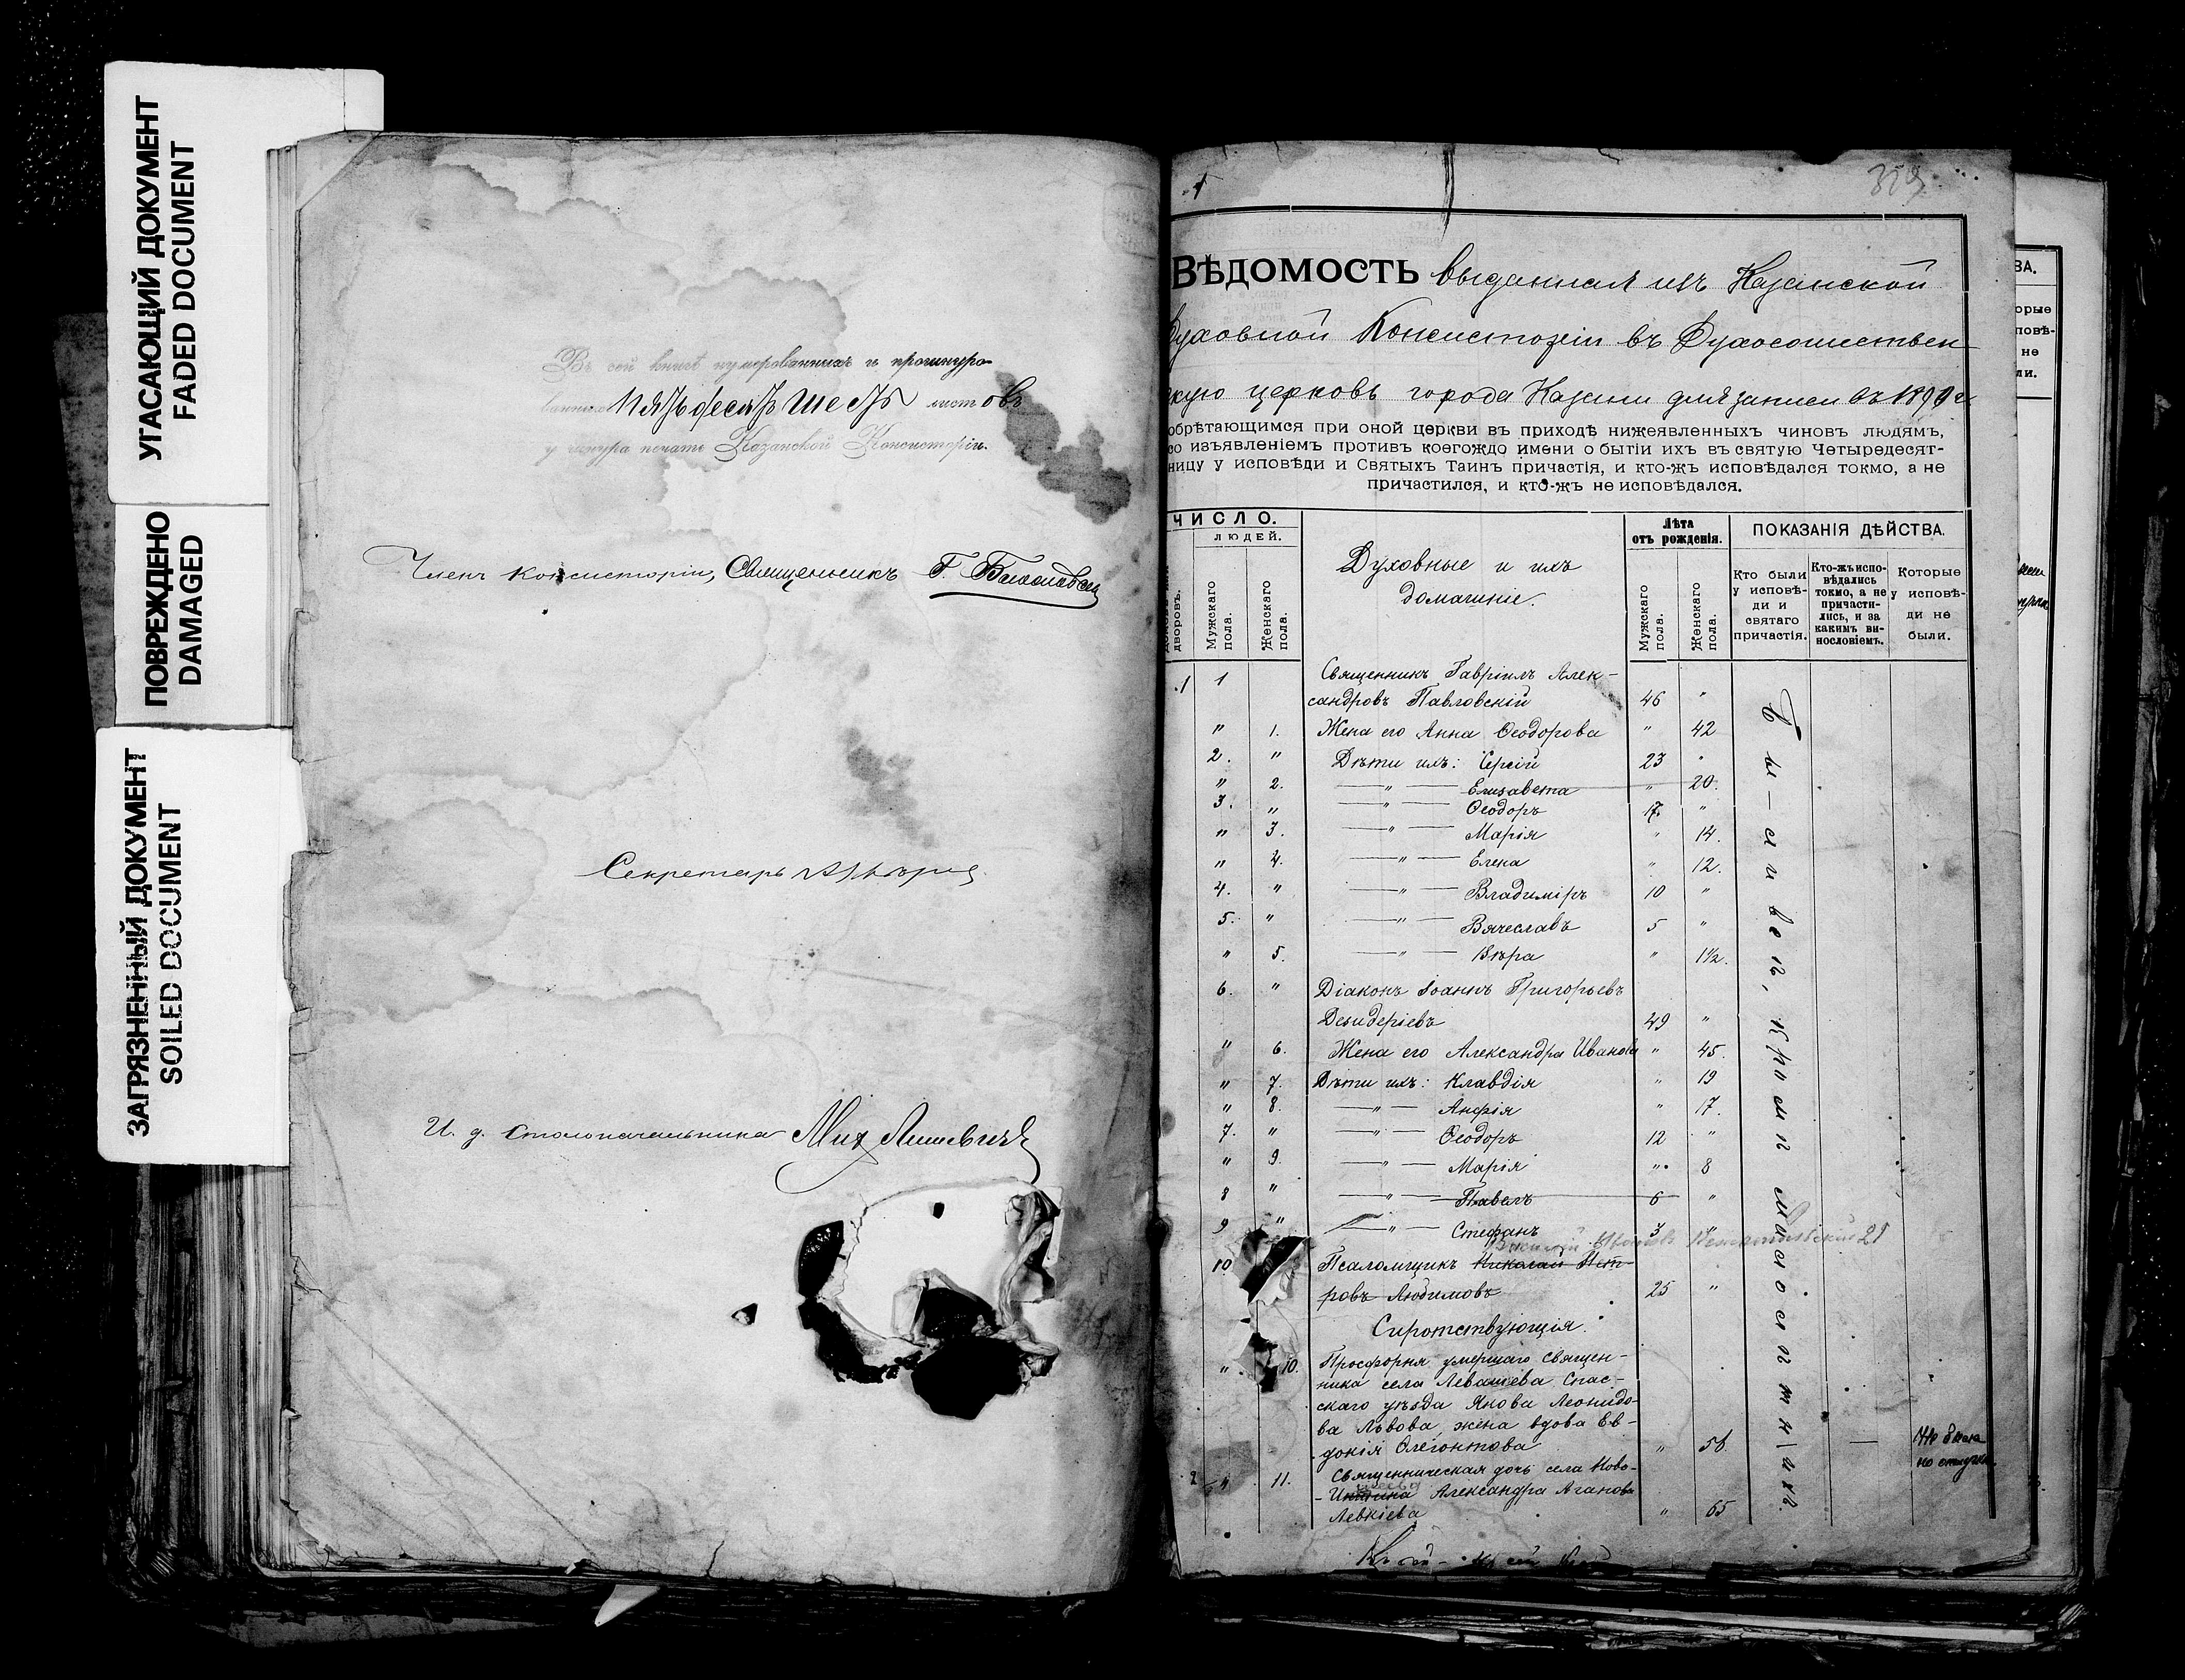 УГАСАЮЩИЙ ДОКУМЕНТ
FADED DOCUMENT
ПОВРЕЖДЕНО
DAMAGED
ЗАГРЯЗНЕННЫЙ ДОКУМЕНТ
SOILED DOCUMENT
Въ сей книгѣ нумерованныхъ и прошнуро-
ванныхъ пятьдесятъ шесть листовъ
у шнура печать Казанской Консисторіи.
Членъ Консисторіи, Священникъ Г.
Секретарь
И. д. Столоначальника Мих
ВѢДОМОСТЬ выданная изъ Казанской
Духовной Консисторіи въ Духосошествен-
скую церковь города Казани для записи въ 1890 г.
обрѣтающимся при оной церкви въ приходѣ нижеявленныхъ чиновъ людямъ,
со изъявленіемъ противъ коегождо имени о бытіи ихъ въ святую Четыредесят-
ницу у исповѣди и Святыхъ Таинъ причастія, и кто-жъ исповѣдался токмо, а не
причастился, и кто-жъ не исповѣдался.
ЧИСЛО.
ЛЮДЕЙ.
дворовъ.
Мужскаго пола.
Женскаго пола.
Духовные и ихъ
домашніе.
Лѣта
отъ рожденія.
Мужскаго пола.
Женскаго пола.
ПОКАЗАНІЯ ДѢЙСТВА.
Кто были
у исповѣ-
ди и
святаго
причастія.
Кто-жъ испо-
вѣдались
токмо, а не
причасти-
лись, и за
какимъ ви-
нословіемъ.
Которые
у исповѣ-
ди не
были.
1 1 Священникъ Гавріилъ Алек-
сандровъ Павловскій 46 "
" 1. Жена его Анна Ѳеодорова " 42
2. " Дѣти ихъ: Сергій 23 "
" 2. — " — Елизавета " 20.
3. " — " — Ѳеодоръ 17. "
" 3. — " — Марія " 14.
" 4. — " — Елена " 12.
4. " — " — Владиміръ 10 "
5. " — " — Вячеславъ 5 "
" 5. — " — Вѣра " 1½.
6. " Діаконъ Іоаннъ Григорьевъ
Дезидеріевъ 49 "
" 6. Жена его Александра Иванова " 45.
" 7. Дѣти ихъ: Клавдія " 19
" 8. — " — Анфія " 17.
7. " — " — Ѳеодоръ 12 "
" 9. — " — Марія " 8
8 " — " — Павелъ 6 "
9 " — " — Стефанъ 3 "
21
10 Псаломщикъ Николай Пет-
ровъ Любимовъ 25 "
Сиротствующія.
" 10. Просфорня умершаго Священ-
ника села Левашева Спас-
скаго уѣзда Якова Леонидо-
ва Львова, жена вдова Ев-
докія Олегонтова " 56 —
2 " 11. Священническая дочь села Ново-
Александра Аганов
Левкіева " 65
Всѣ были, кромѣ малолѣтнихъ.